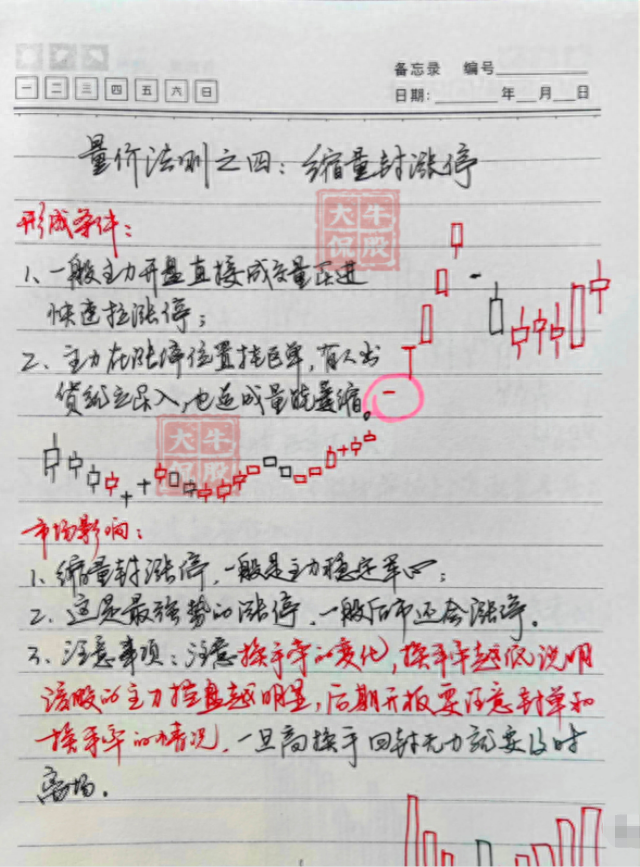 备忘录 编号
一 二 三 四 五 六 日
日期: 年 月 日
量价法则之四:缩量封涨停
大牛
侃股
形成条件:
1、一般主力开盘直接成交量跃进
快速拉涨停;
2、主力在涨停位置挂巨单,有人出
货就立买入,也造成量能萎缩。
大牛
侃股
市场影响:
1、缩量封涨停,一般是主力稳定军心;
2、这是最强势的涨停,一般后市还会涨停。
3、注意事项:注意换手率的变化,换手率越低说明
该股的主力控盘越明显,后期开板要注意封单和
换手率的情况,一旦高换手回封无力就要及时
离场.